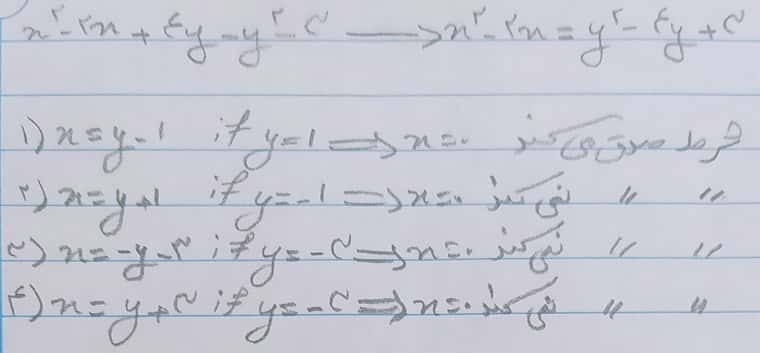 x² - ۲x + ۴y - y² - ۳ ⟶ x² - ۲x = y² - ۴y + ۳
۱) x = y - 1 if y = 1 ⟹ x = ۰ شرط صدق می کند
۲) x = y + 1 if y = -1 ⟹ x = ۰ نمی کند " "
۳) x = -y - ۳ if y = -۳ ⟹ x = ۰ نمی کند " "
۴) x = y + ۳ if y = -۳ ⟹ x = ۰ نمی کند " "